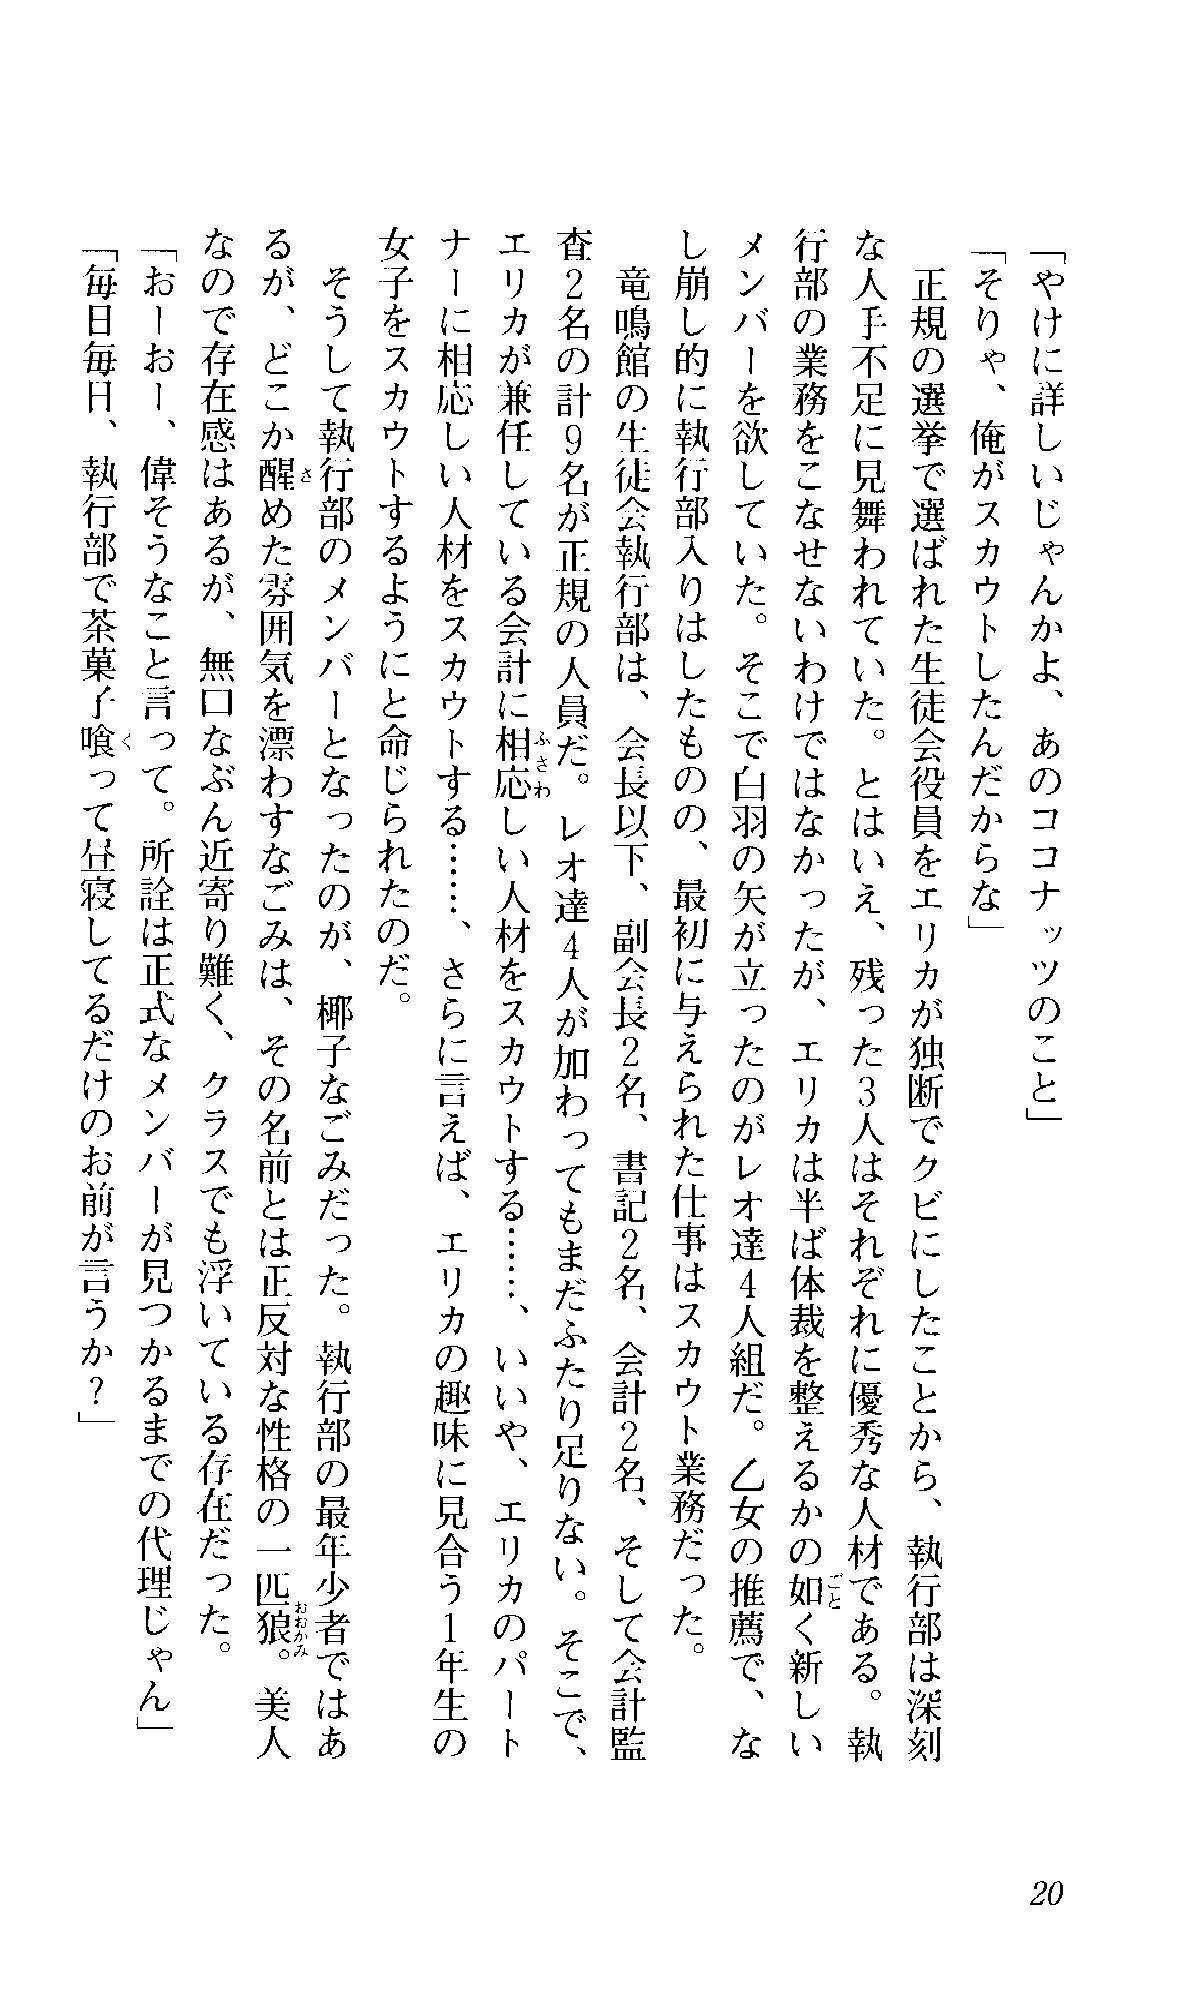 「やけに詳しいじゃんかよ、あのココナッツのこと」
「そりゃ、俺がスカウトしたんだからな」
　正規の選挙で選ばれた生徒会役員をエリカが独断でクビにしたことから、執行部は深刻
な人手不足に見舞われていた。とはいえ、残った3人はそれぞれに優秀な人材である。執
行部の業務をこなせないわけではなかったが、エリカは半ば体裁を整えるかの如く新しい
メンバーを欲していた。そこで白羽の矢が立ったのがレオ達4人組だ。乙女の推薦で、な
し崩し的に執行部入りはしたものの、最初に与えられた仕事はスカウト業務だった。
　竜鳴館の生徒会執行部は、会長以下、副会長2名、書記2名、会計2名、そして会計監
査2名の計9名が正規の人員だ。レオ達4人が加わってもまだふたり足りない。そこで、
エリカが兼任している会計に相応しい人材をスカウトする……、いいや、エリカのパート
ナーに相応しい人材をスカウトする……、さらに言えば、エリカの趣味に見合う1年生の
女子をスカウトするようにと命じられたのだ。
　そうして執行部のメンバーとなったのが、椰子なごみだった。執行部の最年少者ではあ
るが、どこか醒めた雰囲気を漂わすなごみは、その名前とは正反対な性格の一匹狼。美人
なので存在感はあるが、無口なぶん近寄り難く、クラスでも浮いている存在だった。
「おーおー、偉そうなこと言って。所詮は正式なメンバーが見つかるまでの代理じゃん」
「毎日毎日、執行部で茶菓子喰って昼寝してるだけのお前が言うか？」
20